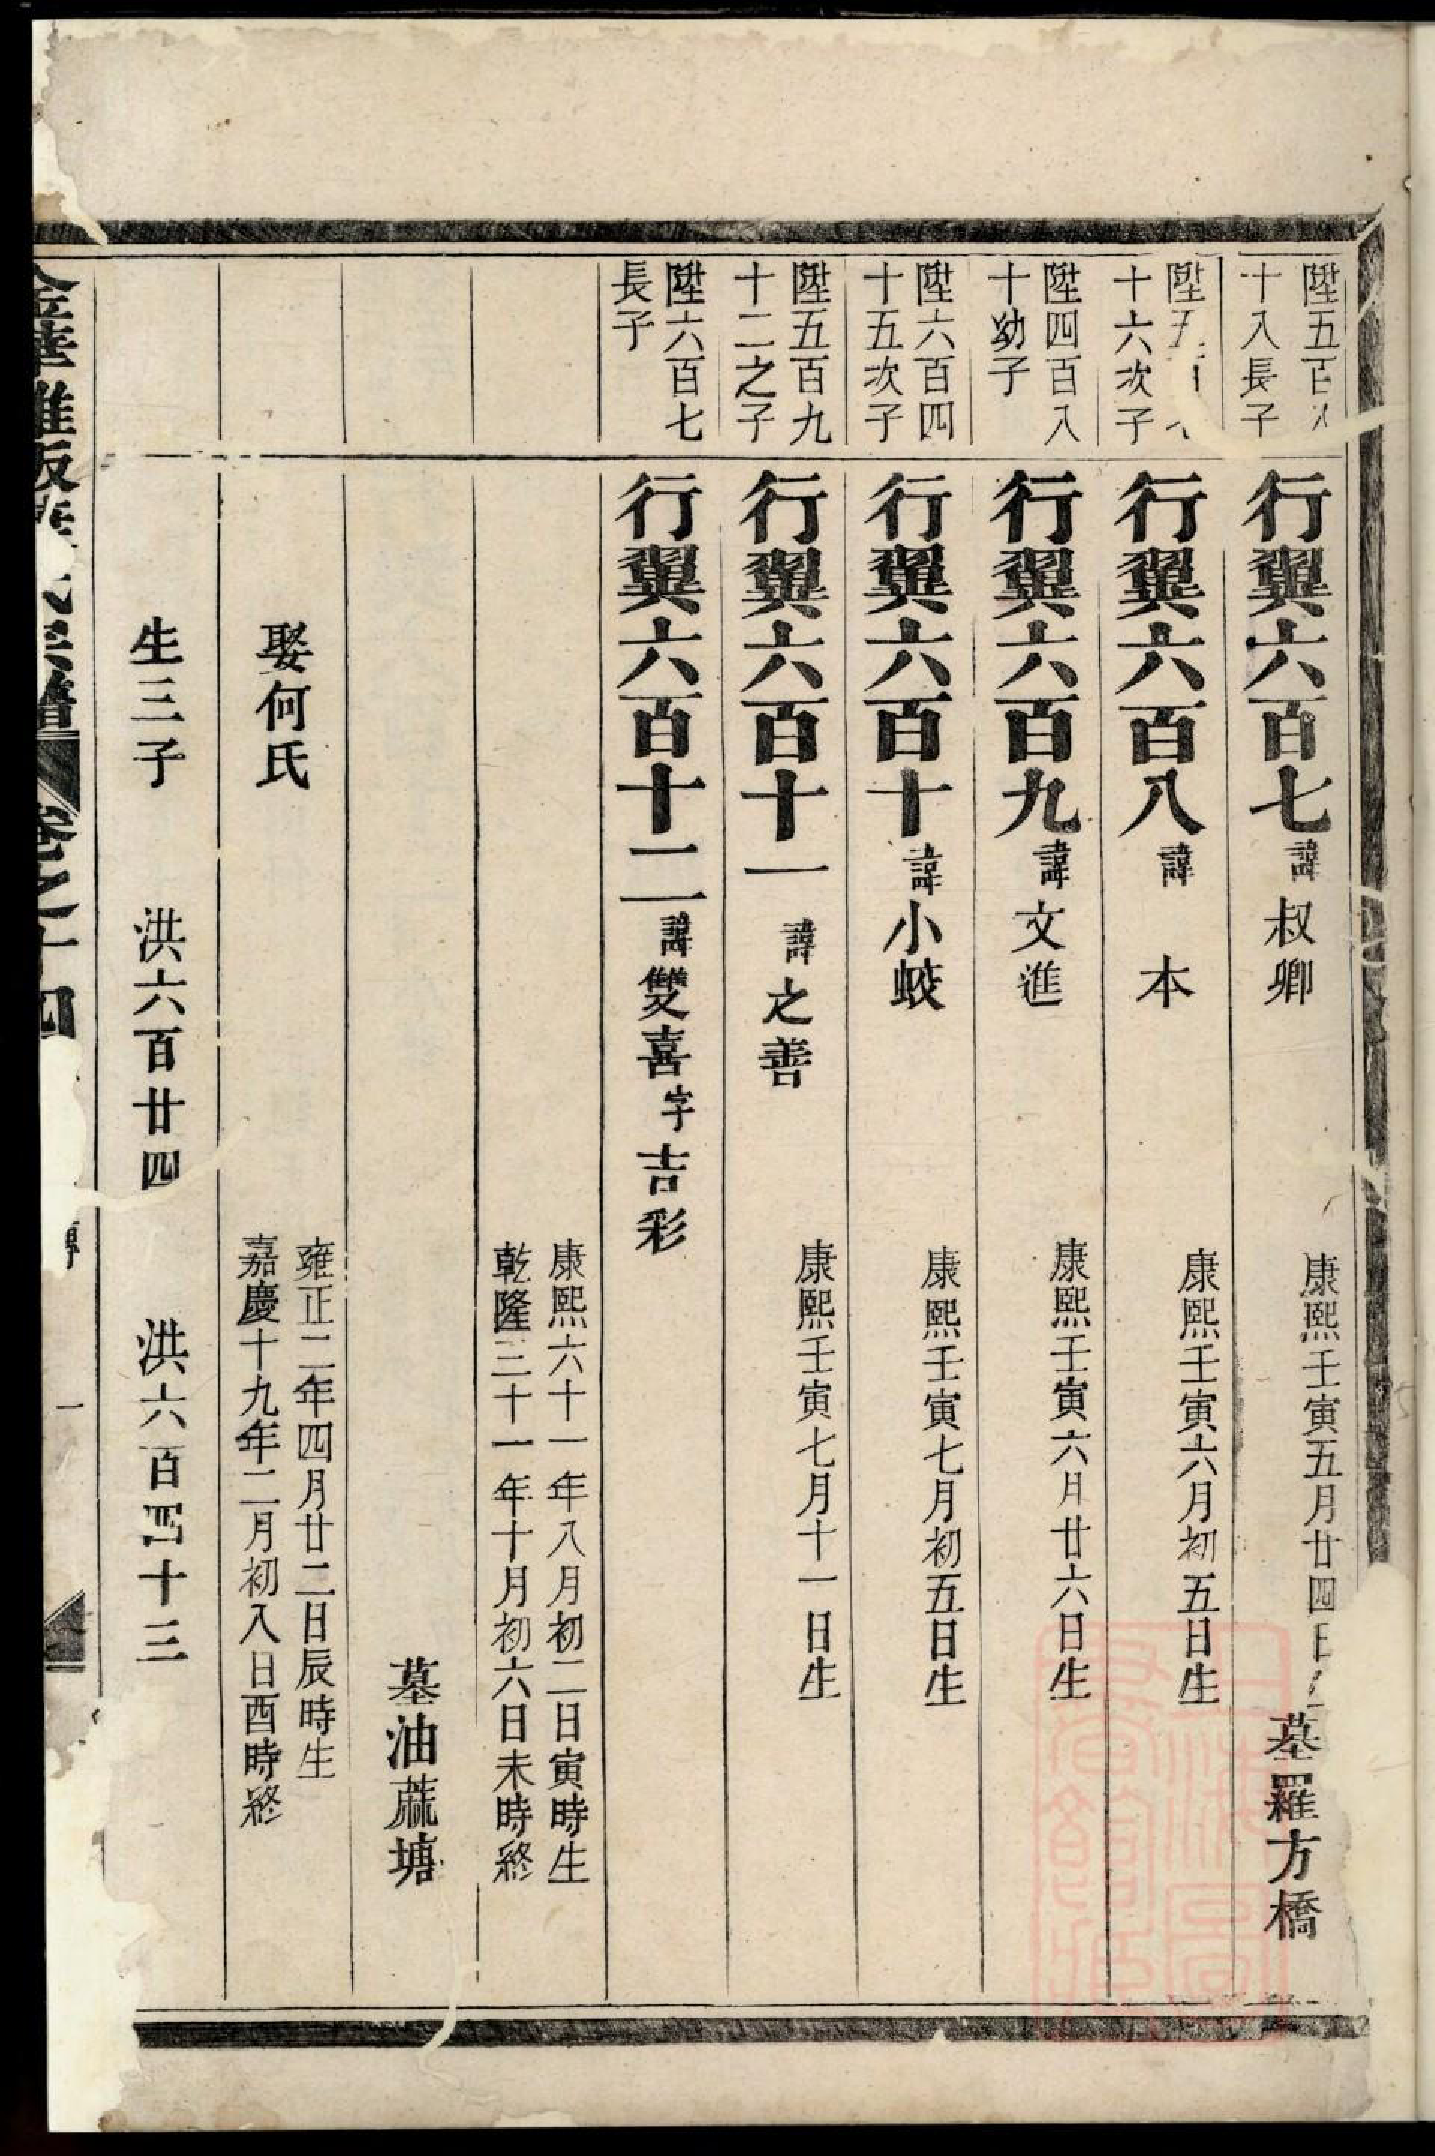 陞五百
十八長子
行翼六百七 諱叔卿 康熙壬寅五月廿四日 墓羅方橋
陞五
十六次子
行翼六百八 諱本 康熙壬寅六月初五日生
陞四百八
十幼子
行翼六百九 諱文進 康熙壬寅六月廿六日生
陞六百四
十五次子
行翼六百十 諱小蛟 康熙壬寅七月初五日生
陞五百九
十二之子
行翼六百十一 諱之善 康熙壬寅七月十一日生
陞六百七
長子
行翼六百十二 諱雙喜 字吉彩
康熙六十一年八月初二日寅時生
乾隆三十一年十月初六日未時終
墓油蔴塘
娶何氏 雍正二年四月廿二日辰時生
嘉慶十九年二月初八日酉時終
生三子 洪六百廿四 洪六百四十三
金華雅畈 氏宗譜 卷之十四 傳 一